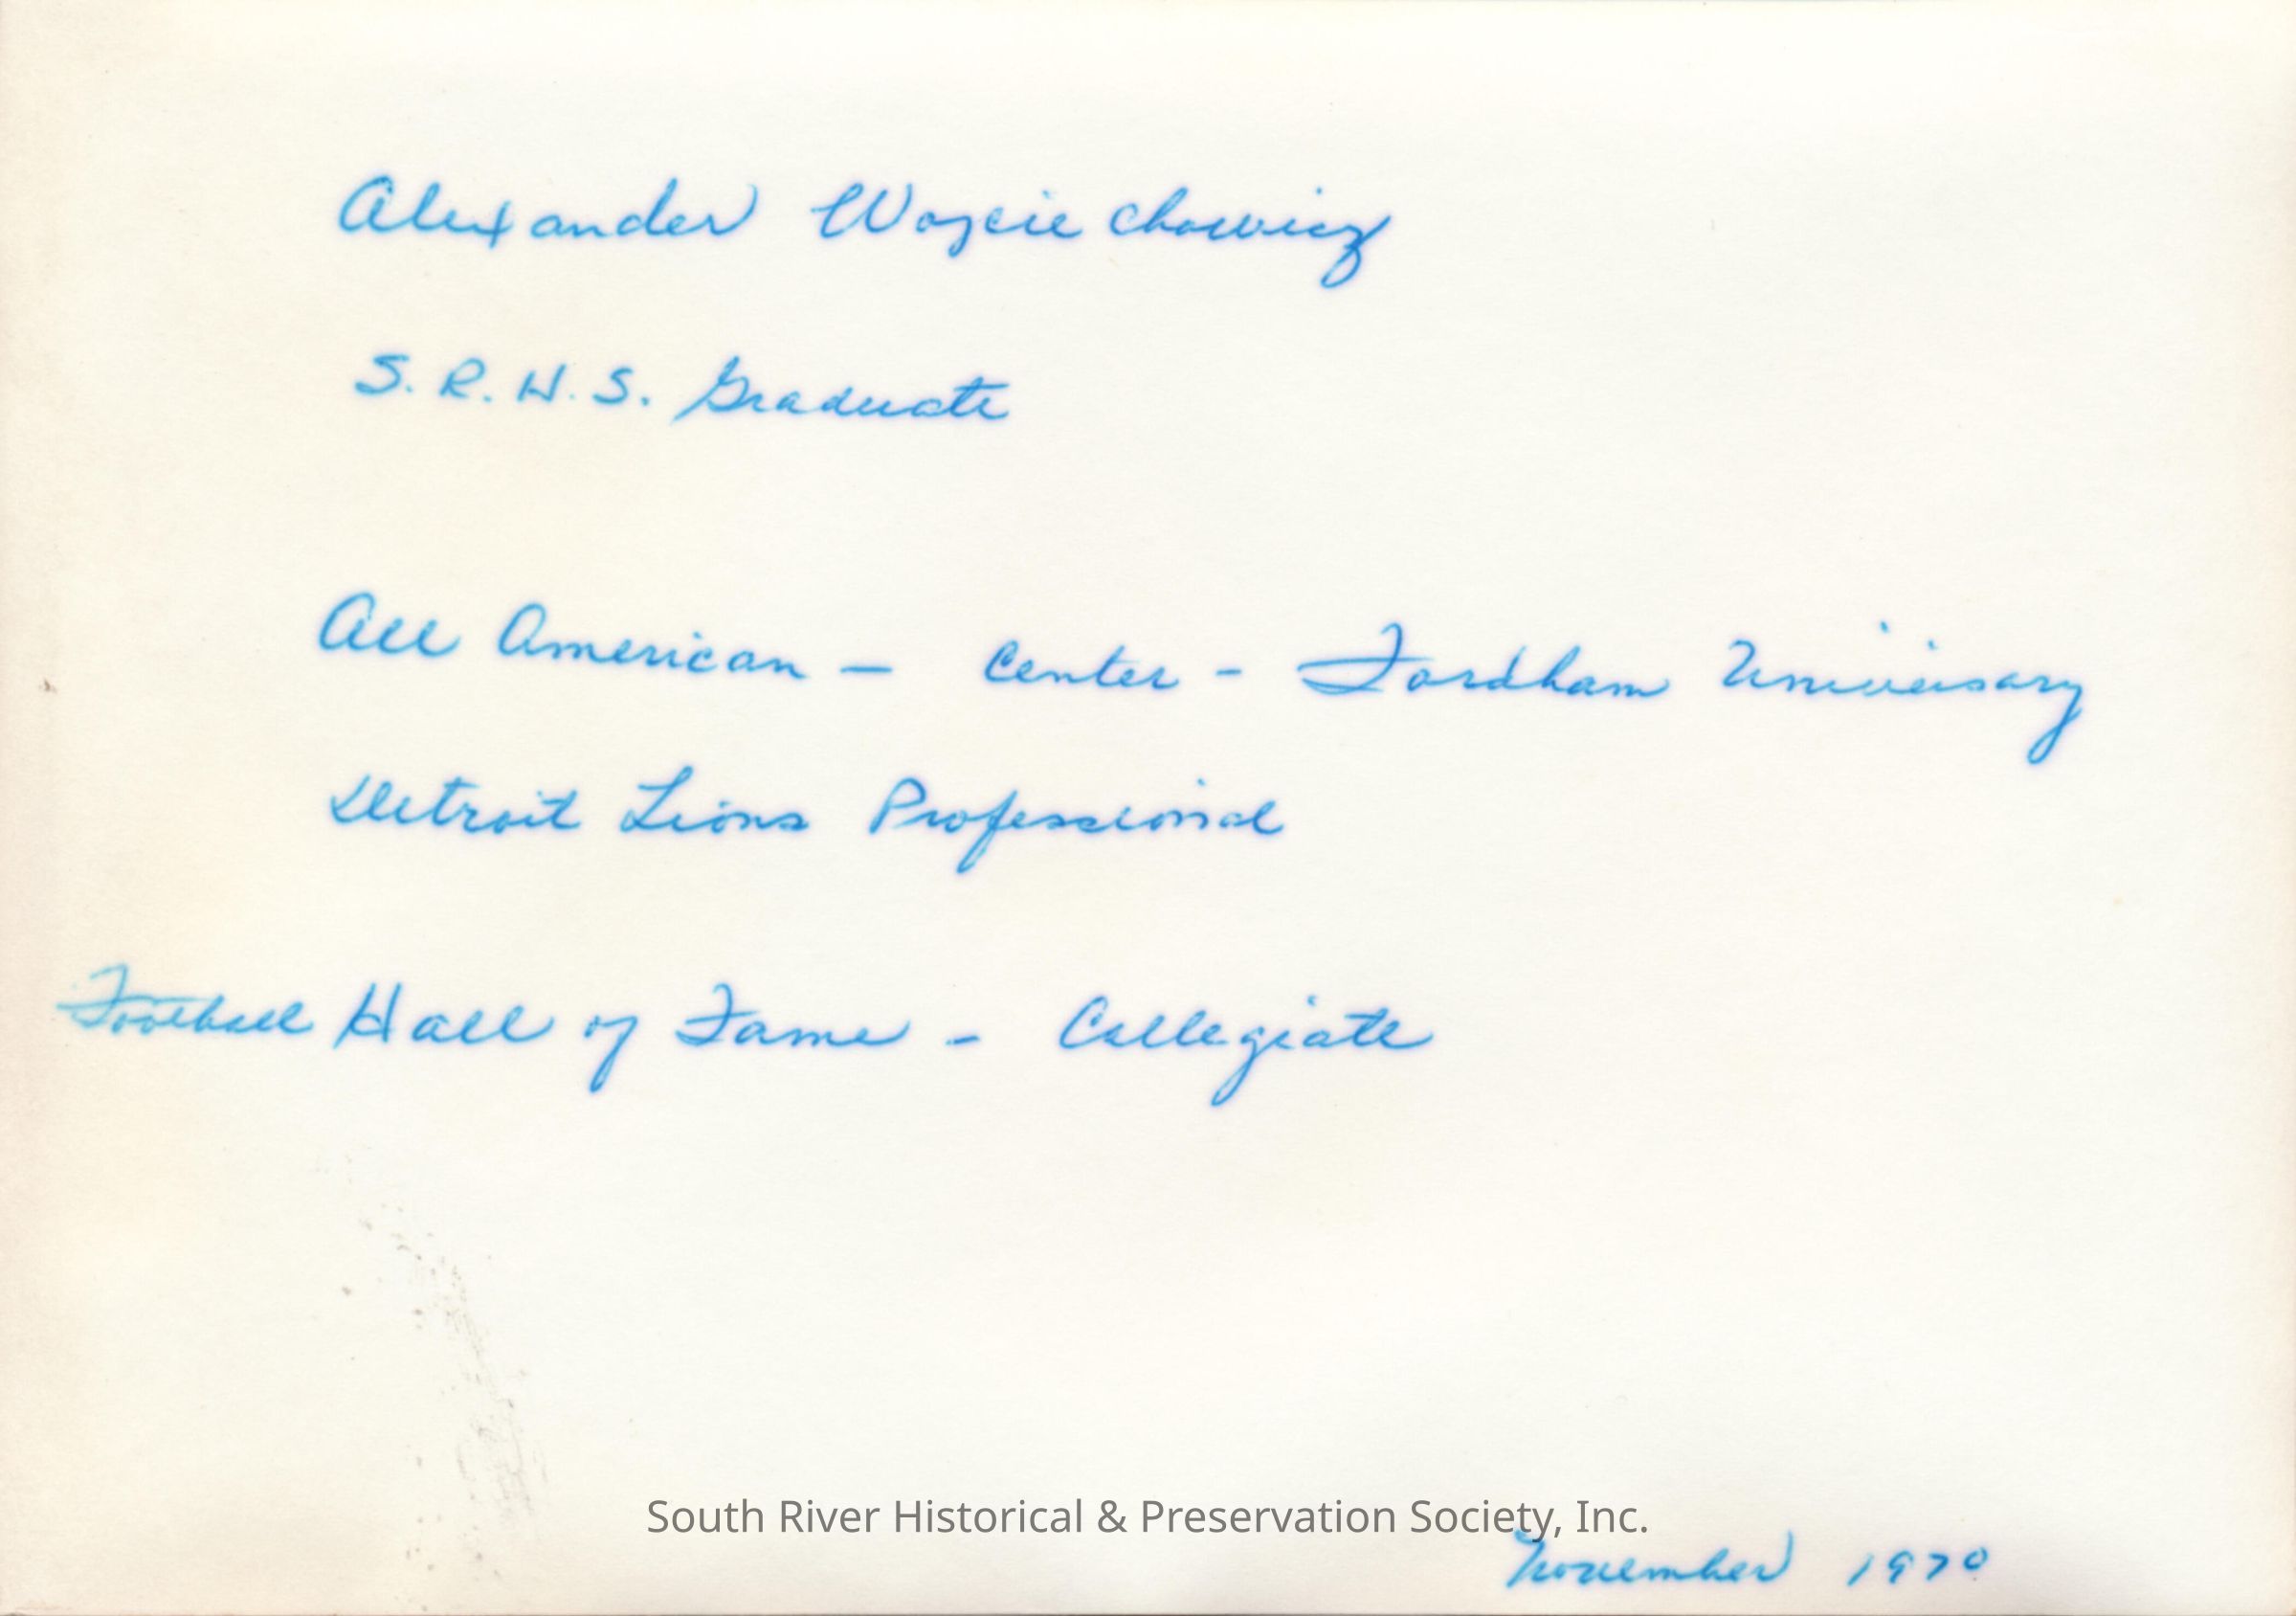 Alexander Wojciechowicz
S. R. H. S. Graduate
All American - Center - Fordham Universary
Detroit Lions Professional
Football Hall of Fame - Collegiate
South River Historical & Preservation Society, Inc.
November 1970